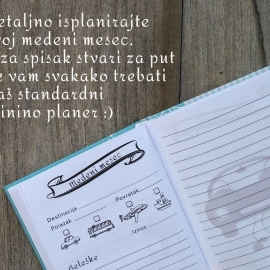 etaljno isplanirajte
oj medeni mesec.
za spisak stvari za put
e vam svakako trebati
aš standardni
inino planer :)
medeni mesec
Destinacija
Polazak
Povratak
Iznos
Beleške